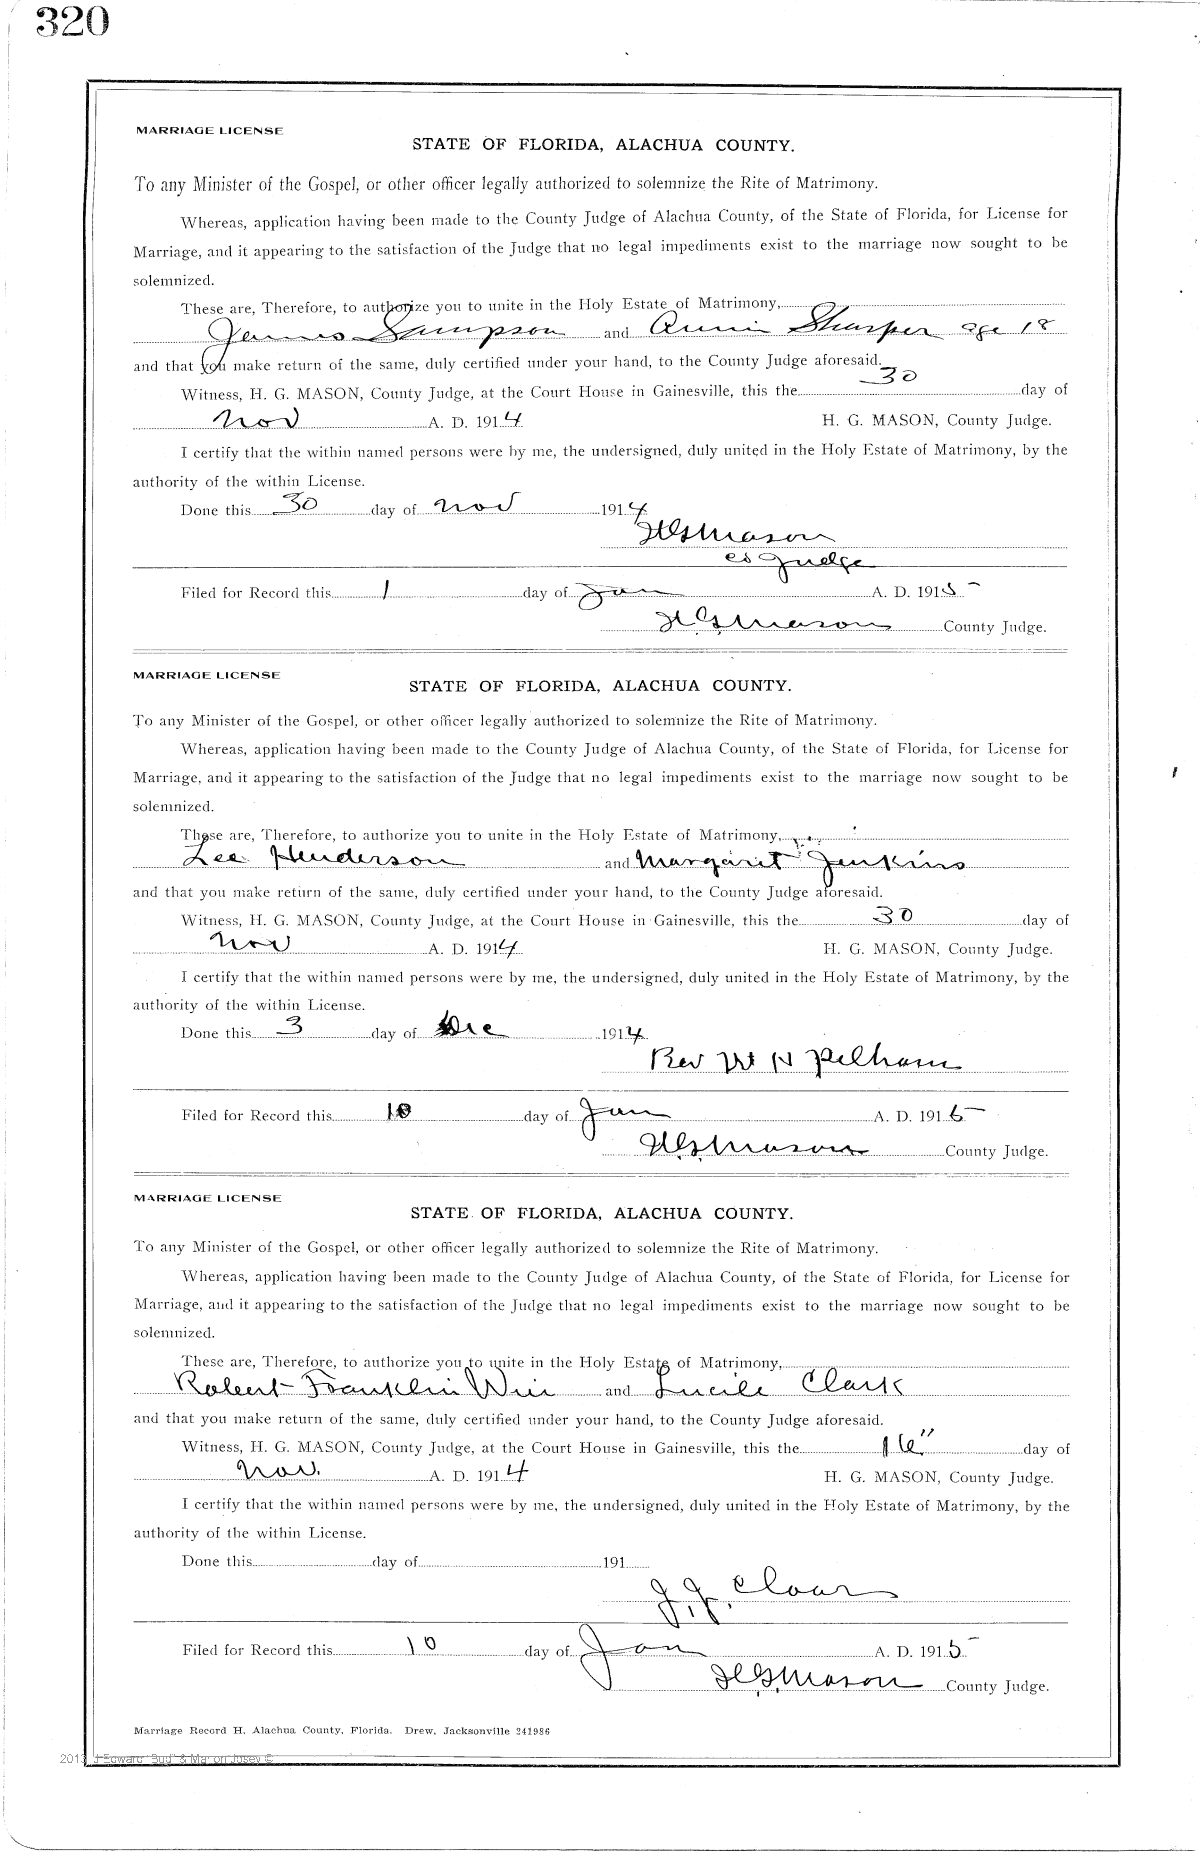 320
MARRIAGE LICENSE
STATE OF FLORIDA, ALACHUA COUNTY.
To any Minister of the Gospel, or other officer legally authorized to solemnize the Rite of Matrimony.
Whereas, application having been made to the County Judge of Alachua County, of the State of Florida, for License for
Marriage, and it appearing to the satisfaction of the Judge that no legal impediments exist to the marriage now sought to be
solemnized.
These are, Therefore, to authorize you to unite in the Holy Estate of Matrimony,
James Sampson and Annie Sharper age 18
and that you make return of the same, duly certified under your hand, to the County Judge aforesaid.
Witness, H. G. MASON, County Judge, at the Court House in Gainesville, this the 30 day of
Nov A. D. 1914 H. G. MASON, County Judge.
I certify that the within named persons were by me, the undersigned, duly united in the Holy Estate of Matrimony, by the
authority of the within License.
Done this 30 day of Nov 1914
H G Mason
Co Judge
Filed for Record this 1 day of Jan A. D. 1915
H. G. Mason County Judge.
MARRIAGE LICENSE
STATE OF FLORIDA, ALACHUA COUNTY.
To any Minister of the Gospel, or other officer legally authorized to solemnize the Rite of Matrimony.
Whereas, application having been made to the County Judge of Alachua County, of the State of Florida, for License for
Marriage, and it appearing to the satisfaction of the Judge that no legal impediments exist to the marriage now sought to be
solemnized.
These are, Therefore, to authorize you to unite in the Holy Estate of Matrimony,
Lee Henderson and Margaret Jenkins
and that you make return of the same, duly certified under your hand, to the County Judge aforesaid.
Witness, H. G. MASON, County Judge, at the Court House in Gainesville, this the 30 day of
Nov A. D. 1914 H. G. MASON, County Judge.
I certify that the within named persons were by me, the undersigned, duly united in the Holy Estate of Matrimony, by the
authority of the within License.
Done this 3 day of Dec 1914
Rev W N Pelham
Filed for Record this 10 day of Jan A. D. 1915
H. G. Mason County Judge.
MARRIAGE LICENSE
STATE OF FLORIDA, ALACHUA COUNTY.
To any Minister of the Gospel, or other officer legally authorized to solemnize the Rite of Matrimony.
Whereas, application having been made to the County Judge of Alachua County, of the State of Florida, for License for
Marriage, and it appearing to the satisfaction of the Judge that no legal impediments exist to the marriage now sought to be
solemnized.
These are, Therefore, to authorize you to unite in the Holy Estate of Matrimony,
Robert Franklin and Lucile Clark
and that you make return of the same, duly certified under your hand, to the County Judge aforesaid.
Witness, H. G. MASON, County Judge, at the Court House in Gainesville, this the 16" day of
Nov. A. D. 1914 H. G. MASON, County Judge.
I certify that the within named persons were by me, the undersigned, duly united in the Holy Estate of Matrimony, by the
authority of the within License.
Done this day of 191
J. J.
Filed for Record this 10 day of Jan A. D. 1915
H. G. Mason County Judge.
Marriage Record H, Alachua County, Florida. Drew, Jacksonville 241986
2013 J Edward "Bud" & Marion Josey ©